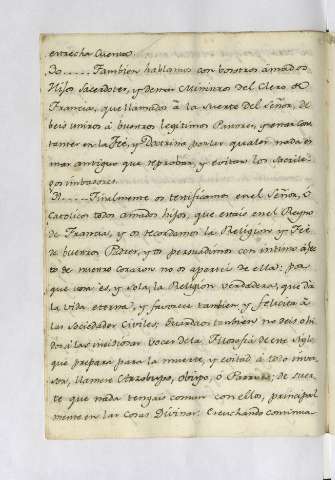 estrecha Cuenta.
30.....Tambien hablamos con vosotros amados
Hijos Sacerdotes, y demas Ministros del Clero de
Francia, que llamados à la Suerte del Señor, de
beis uniros á buestros legitimos Pastores, y estar cons
tantes en la Fee, y Doctrina, por las quales nada es
mas antiguo que reprobar, y evitar los Sacrile
gos imbasores.
31.....Finalmente os testificamos en el Señor, ò
Catolicos todos amados hijos, que estais en el Reyno
de Francia, y os recordamos la Religion y Fee
de buestros Padres, y os persuadimos con intimo afec
to de nuestro corazon no os aparteis de ella: por
que una es, y sola, la Religion verdadera, que dà
la vida eterna, y favorece tambien y felicita à
las Sociedades Civiles; Guardaos tambien no deis ohi
dos à las insidiosas voces de la Filosofia de este Siglo
que prepara para la muerte, y evitad à todo inva
sor, llamese Arzobispo, obispo, ó Parroco; de suer
te que nada tengais comun con ellos, principal
mente en las Cosas Divinas: Escuchando continua